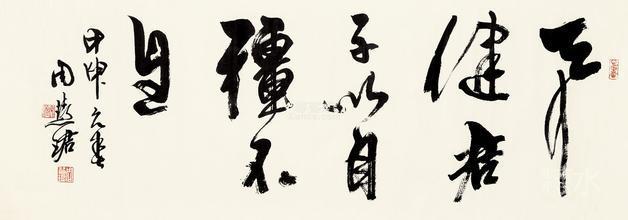 天行
健君
子以自
彊不
息
甲申元春
周慧珺